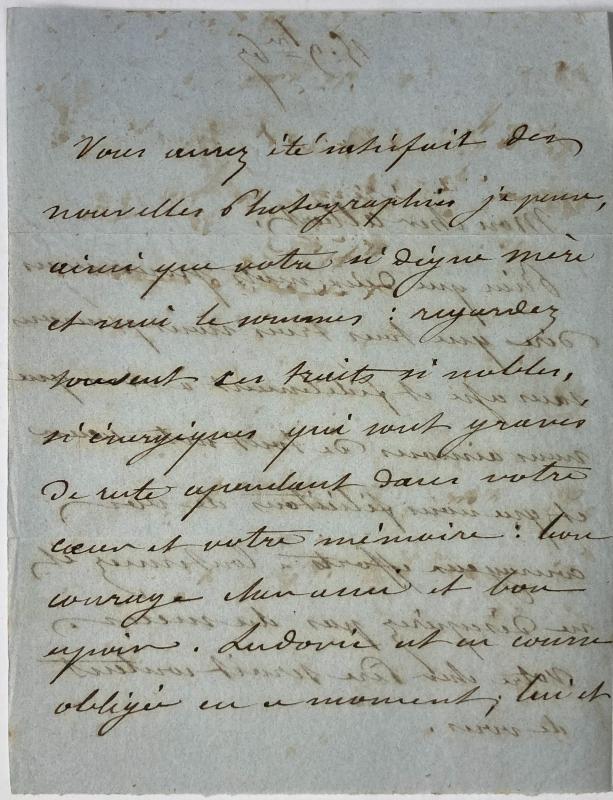 Vous aurez été satisfait des
nouvelles Photographies je pense,
ainsi que votre si digne mère
et moi le sommes : regardez
souvent ces traits si nobles,
si énergiques qui sont gravés
de reste cependant dans votre
cœur et votre mémoire : bon
courage cher ami et bon
espoir. Ludovic est en course
obligée en ce moment ; lui et